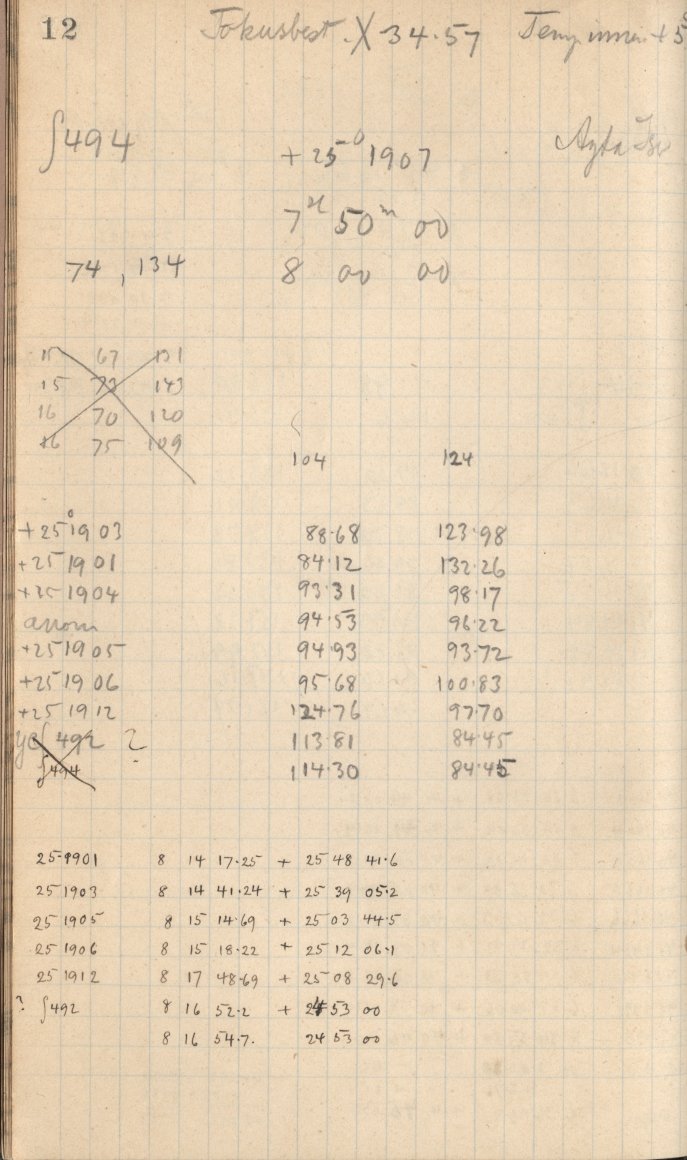 12 Fokusbest. X 34.57 Temp. innen +5°
∫494 +25° 1907 Agfa
7 h 50 m 00
74, 134 8 00 00
15 67 131
15 73 143
16 70 120
16 75 109
104 124
+25° 1903 88.68 123.98
+25 1901 84.12 132.26
+25 1904 93.31 98.17
anom 94.53 96.22
+25 1905 94.93 93.72
+25 1906 95.68 100.83
+25 1912 124.76 97.70
∫492 ? 113.81 84.45
∫494 114.30 84.45
25.1901 8 14 17.25 + 25 48 41.6
25 1903 8 14 41.24 + 25 39 05.2
25 1905 8 15 14.69 + 25 03 44.5
25 1906 8 15 18.22 + 25 12 06.1
25 1912 8 17 48.69 + 25 08 29.6
? ∫492 8 16 52.2 + 24 53 00
8 16 54.7. 24 53 00